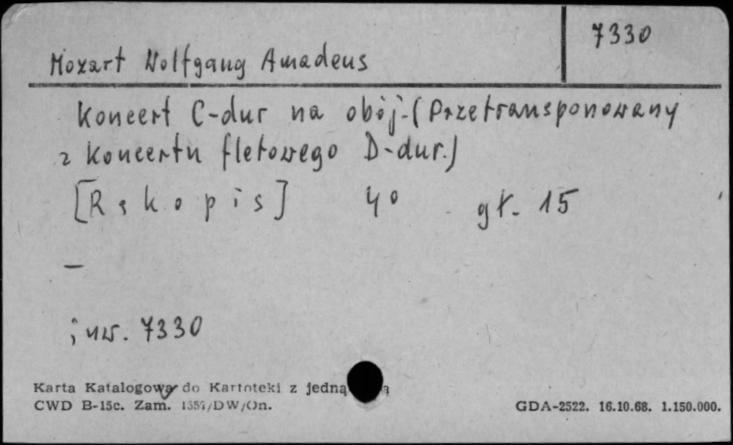 7330
Mozart Wolfgang Amadeus
Koncert C-dur na obój. (Przetransponowany
z Koncertu fletowego D-dur.)
[Rękopis] 4° gł. 15
—
; nr. 7330
Karta Katalogowa do Kartoteki z jedną
CWD B-15c. Zam. 1357/DW/On.
GDA-2522. 16.10.68. 1.150.000.